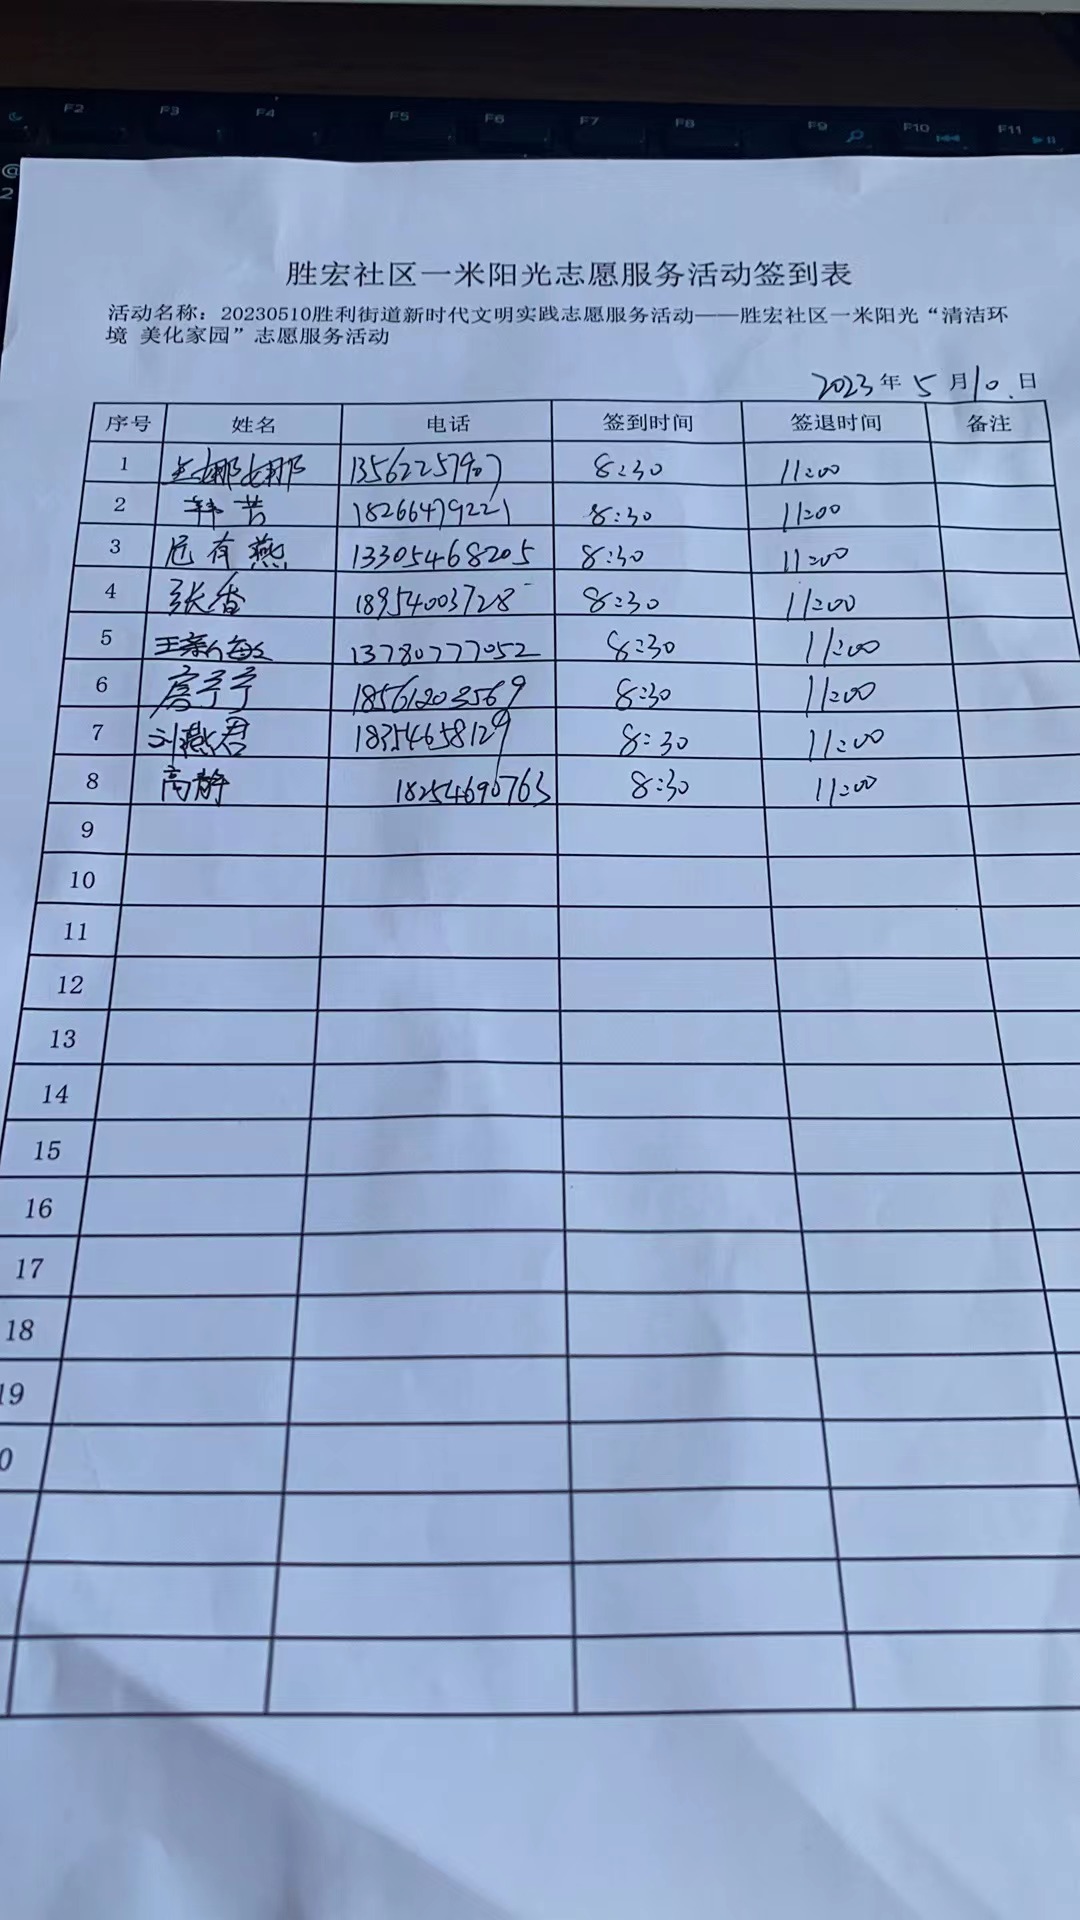 F2 F3 F4 F5 F6 F7 F8 F9 F10 F11
@
2
胜宏社区一米阳光志愿服务活动签到表
活动名称：20230510胜利街道新时代文明实践志愿服务活动——胜宏社区一米阳光“清洁环
境 美化家园”志愿服务活动
2023年5月10日
序号 姓名 电话 签到时间 签退时间 备注
1 娜娜 13562257907 8:30 11:00
2 韩芸 18266479221 8:30 11:00
3 有燕 13305468205 8:30 11:00
4 张香 18954003728 8:30 11:00
5 王 13780777052 8:30 11:00
6 宁宁 18561203569 8:30 11:00
7 刘燕君 18354658129 8:30 11:00
8 高静 18254690763 8:30 11:00
9
10
11
12
13
14
15
16
17
18
19
0